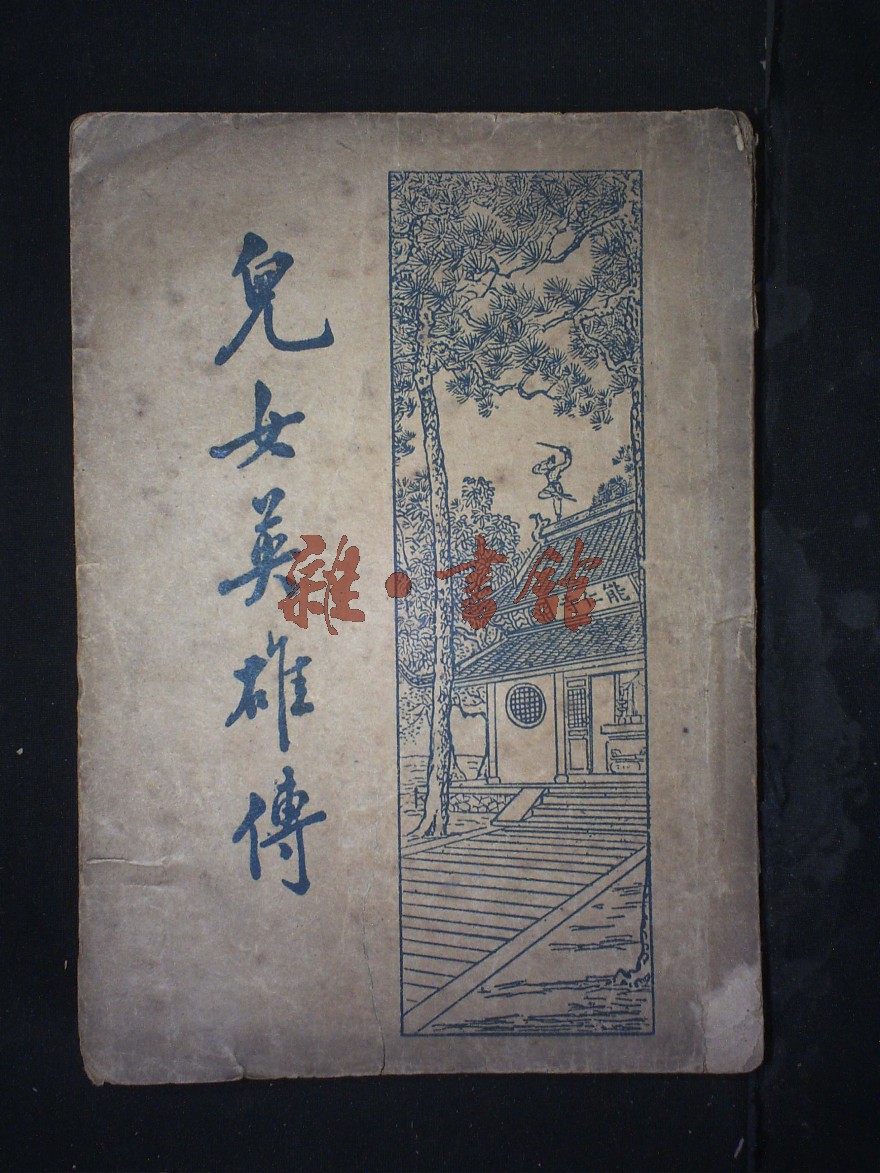 兒女英雄傳
雜·書館
能